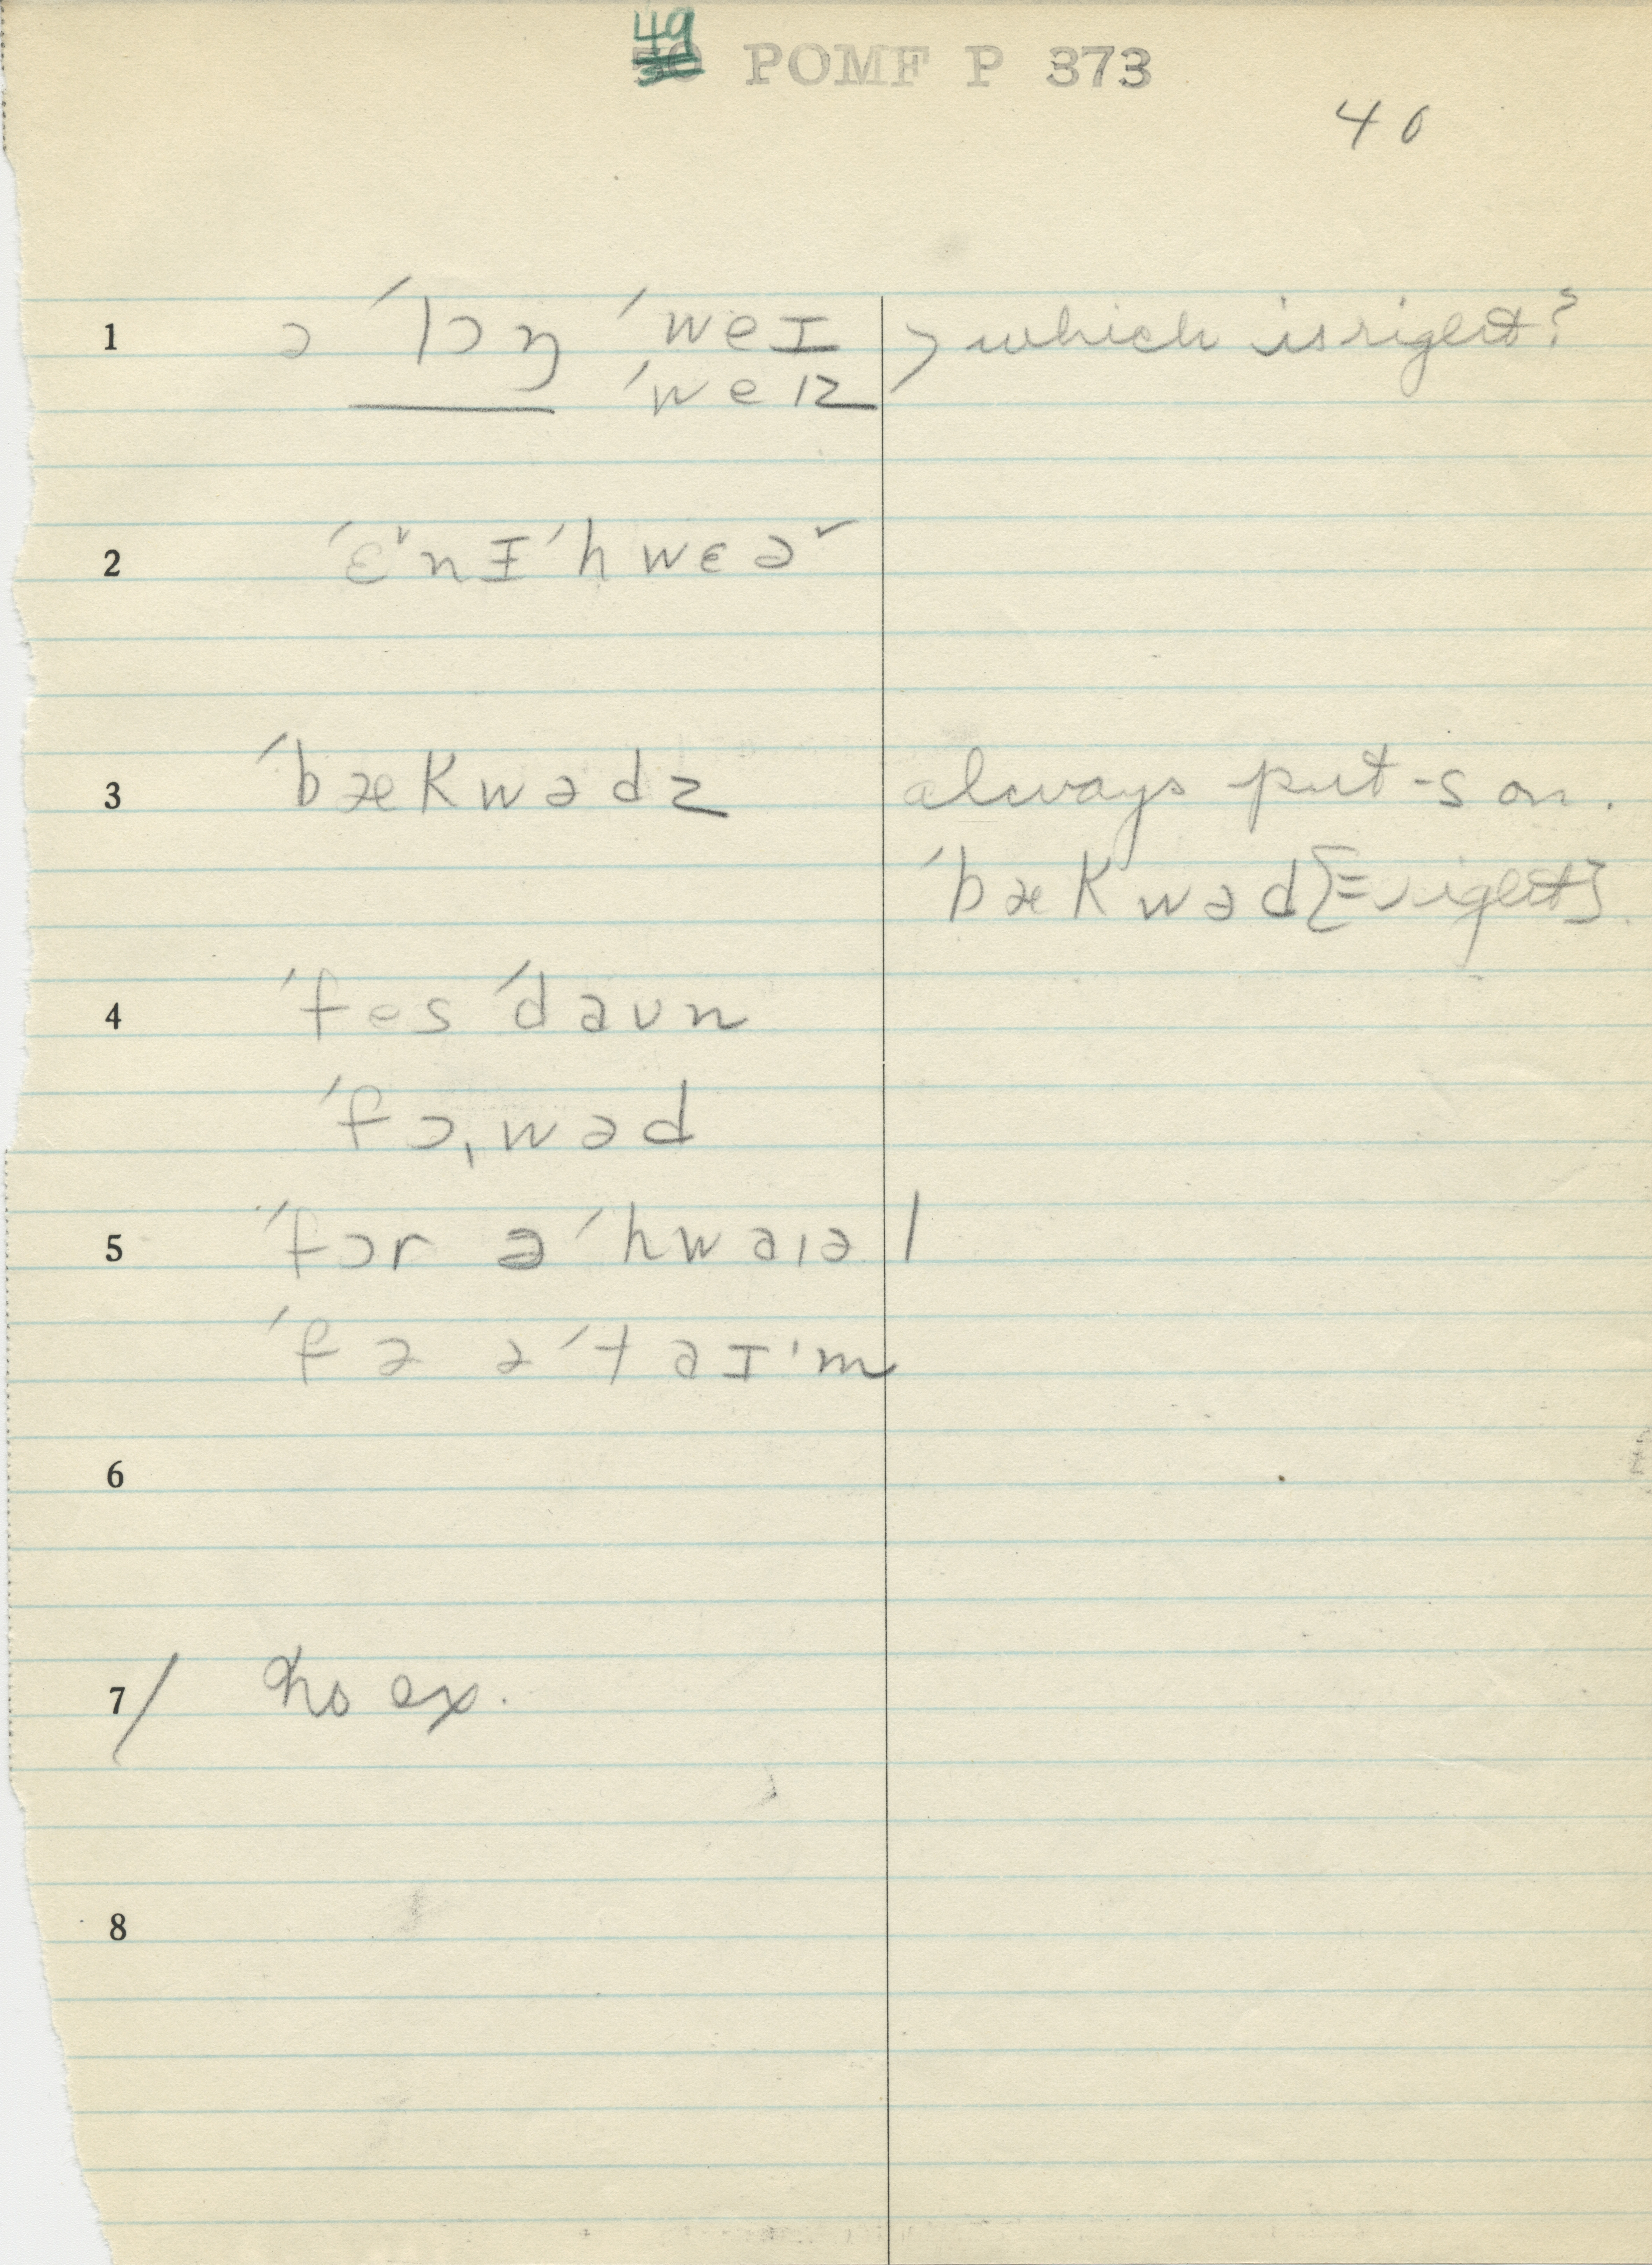 49
30 POMF P 373
40
1 ə ˈlɔŋ ˈweɪ > which is right?
ˈweɪz
2 ˈɛ˅nɪˈhwɛə˅
3 ˈbækwədz always put -s on.
ˈbækwəd [= right].
4 ˈfesˈdaʊn
ˈfɔˌwəd
5 ˈfɔr ə ˈhwaɪəl
ˈfə əˈtaɪˑm
6
7 / no ex.
8